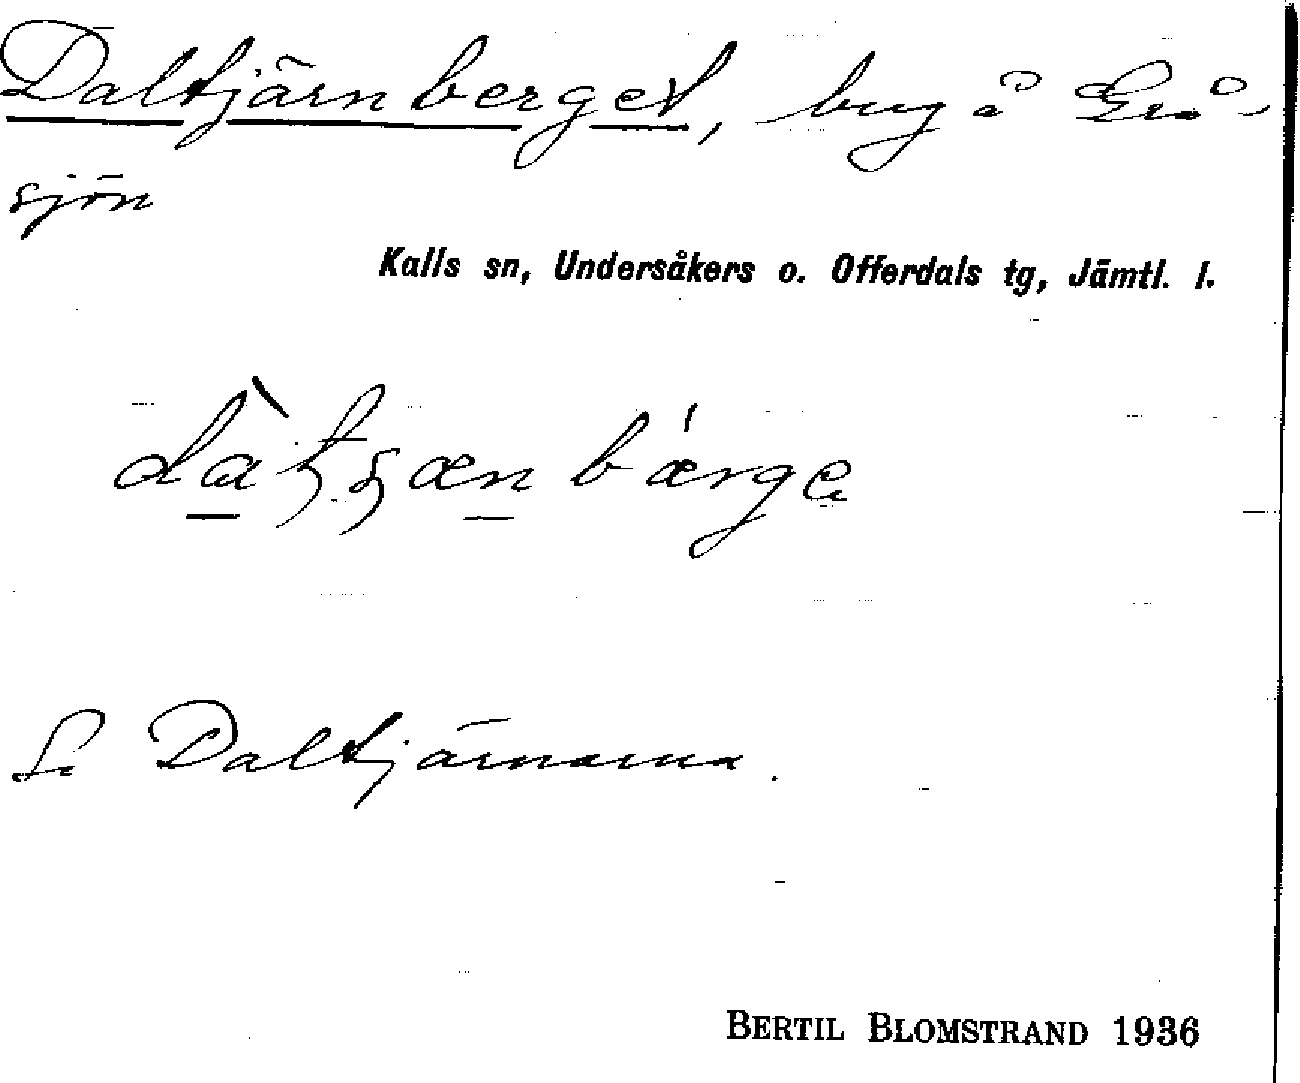 Daltjärnberget, bug å Grå-
sjön
Kalls sn, Undersåkers o. Offerdals tg, Jämtl. l.
Se Daltjärnarna.
BERTIL BLOMSTRAND 1936